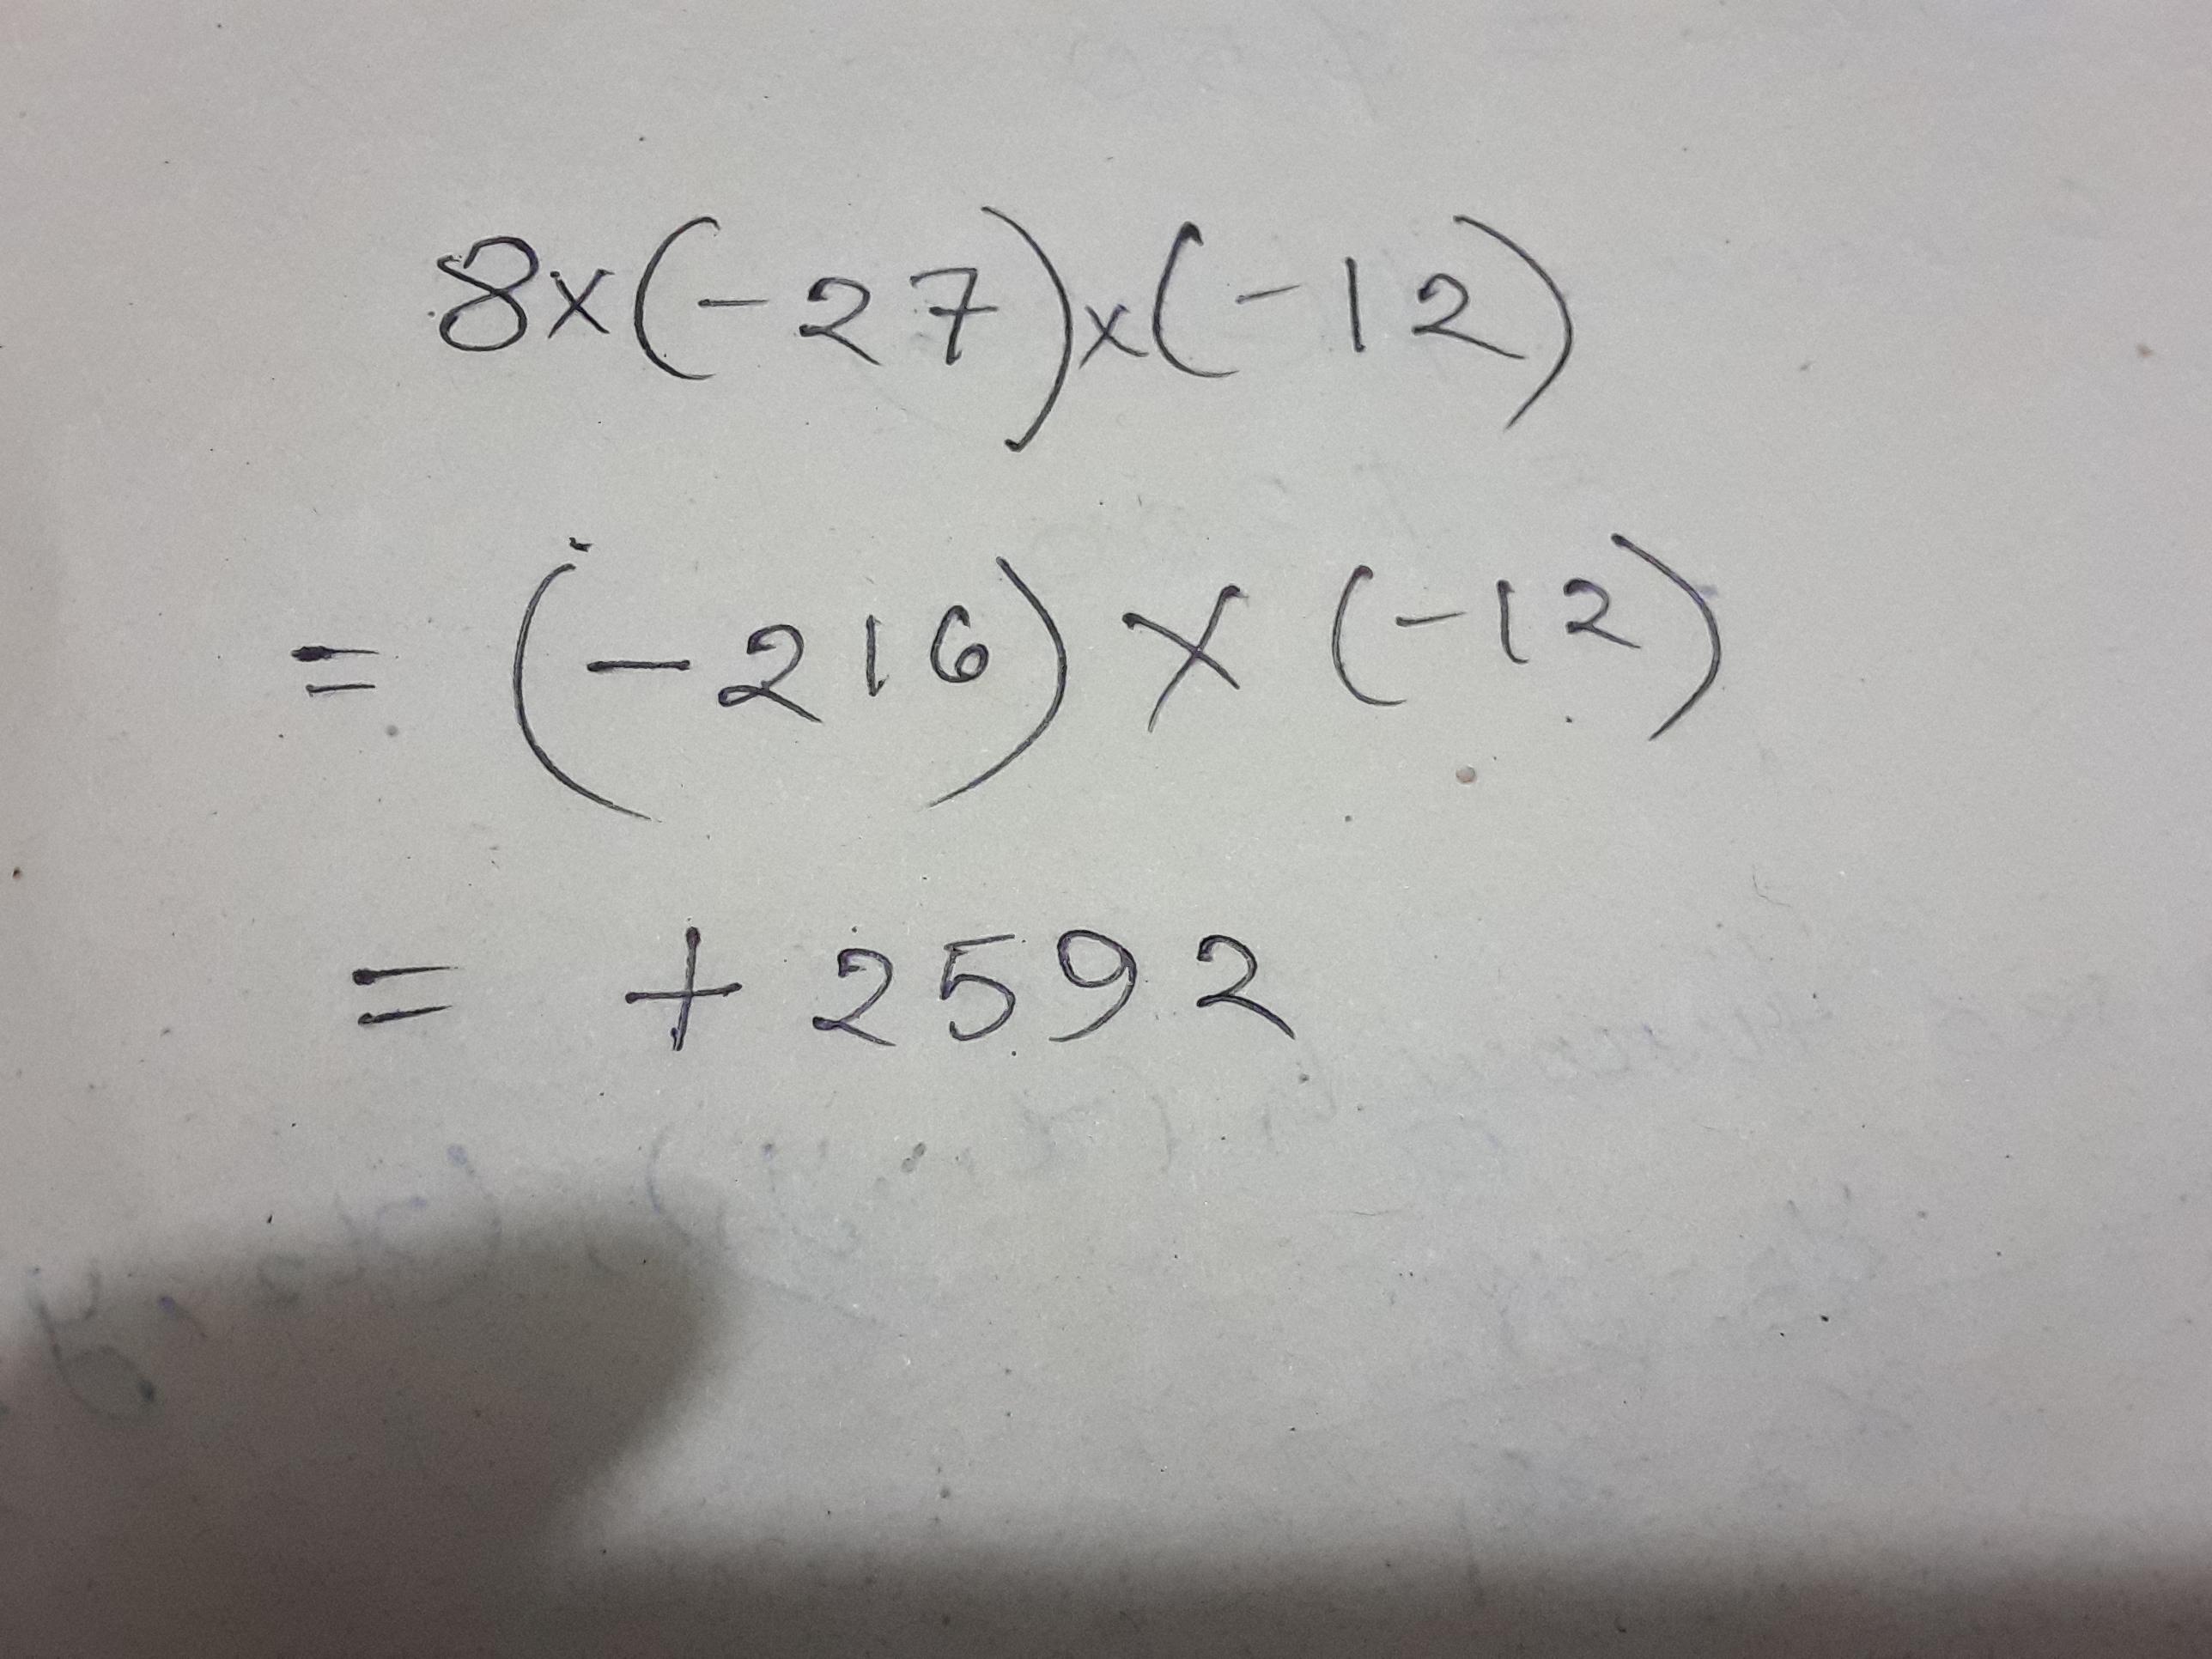 8×(-27)×(-12)
= (-216) × (-12)
= +2592